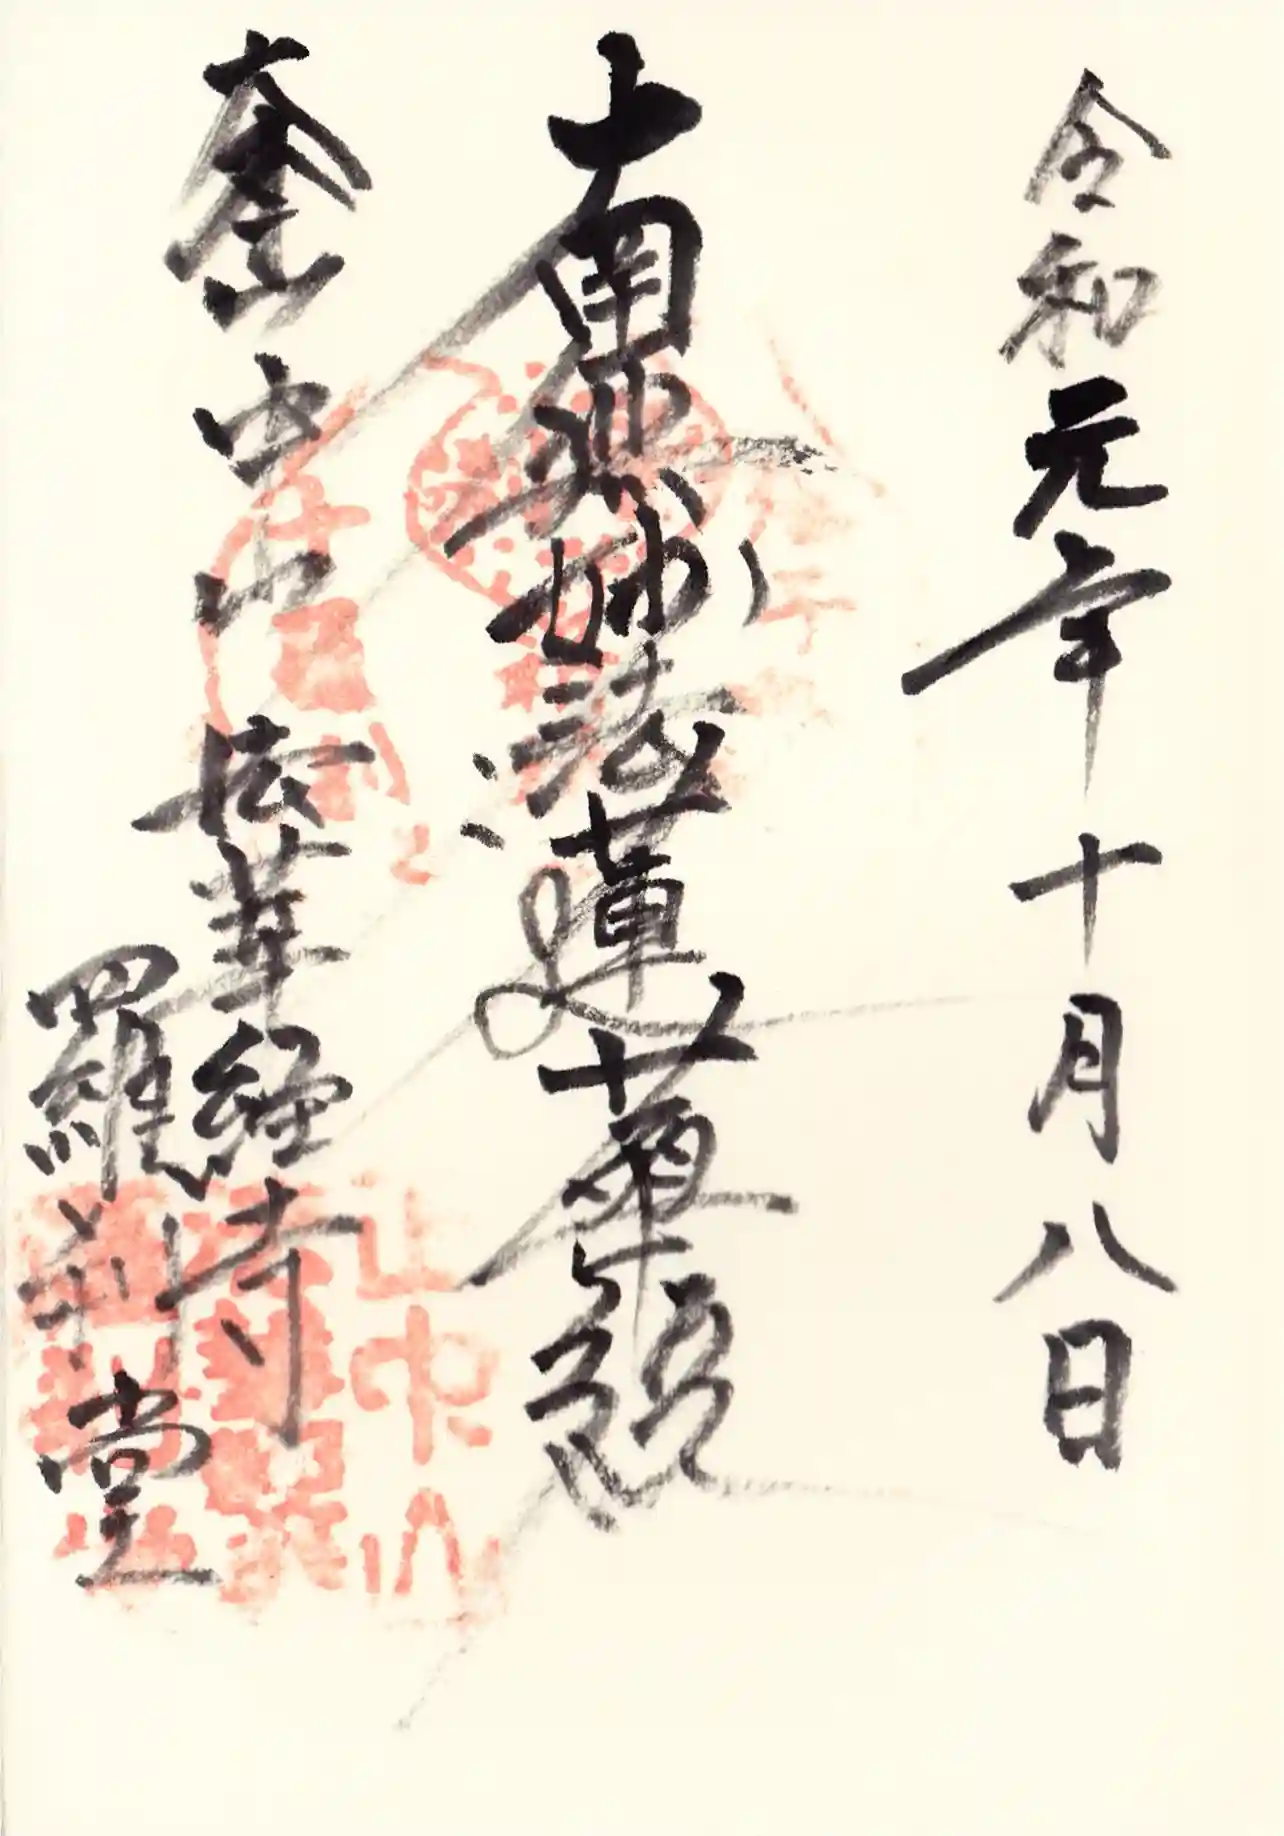 令和元年十月八日
南無妙法蓮華経
大本山中山法華経寺
羅刹堂